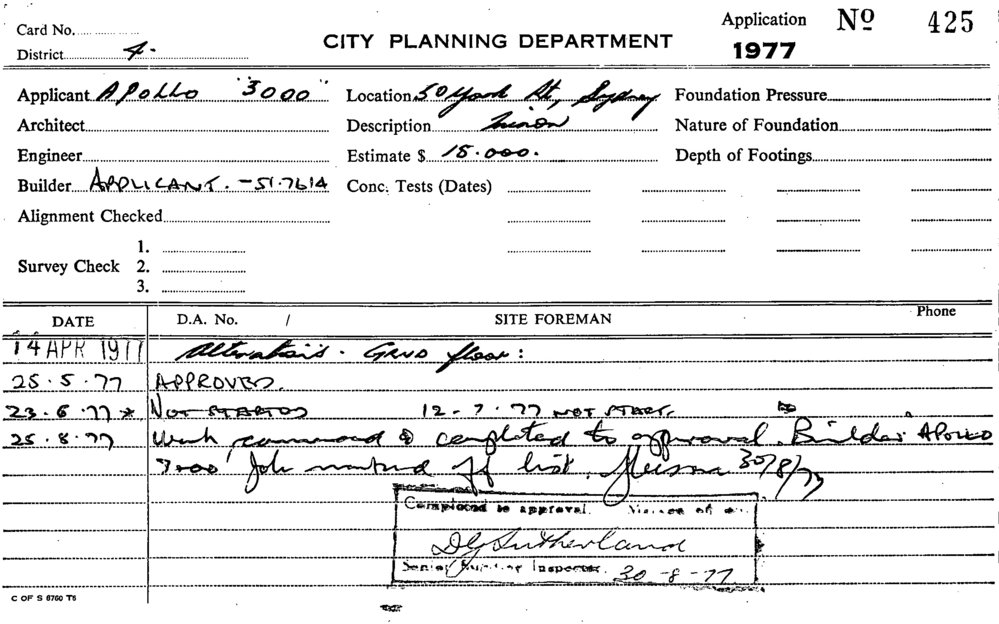 Card No.
District 4.
CITY PLANNING DEPARTMENT
Application Nº 425
1977
Applicant APOLLO "3000" Location 50 York St, Sydney Foundation Pressure
Architect Description Minor Nature of Foundation
Engineer Estimate $ 15.000. Depth of Footings
Builder APPLICANT. - 51.7614 Conc. Tests (Dates)
Alignment Checked
1.
Survey Check 2.
3.
DATE D.A. No. / SITE FOREMAN Phone
14 APR 1977 Alterations. GRND floor:
25.5.77 APPROVED.
23.6.77 * NOT STARTED 12-7-77 NOT START.
25.8.77 Work commenced & completed to approval. Builder APOLLO
3000' Job marked off list. 30/8/77
Completed to approval. of
DG Sutherland
Senior Building Inspector. 30-8-77
C OF S 6760 T5